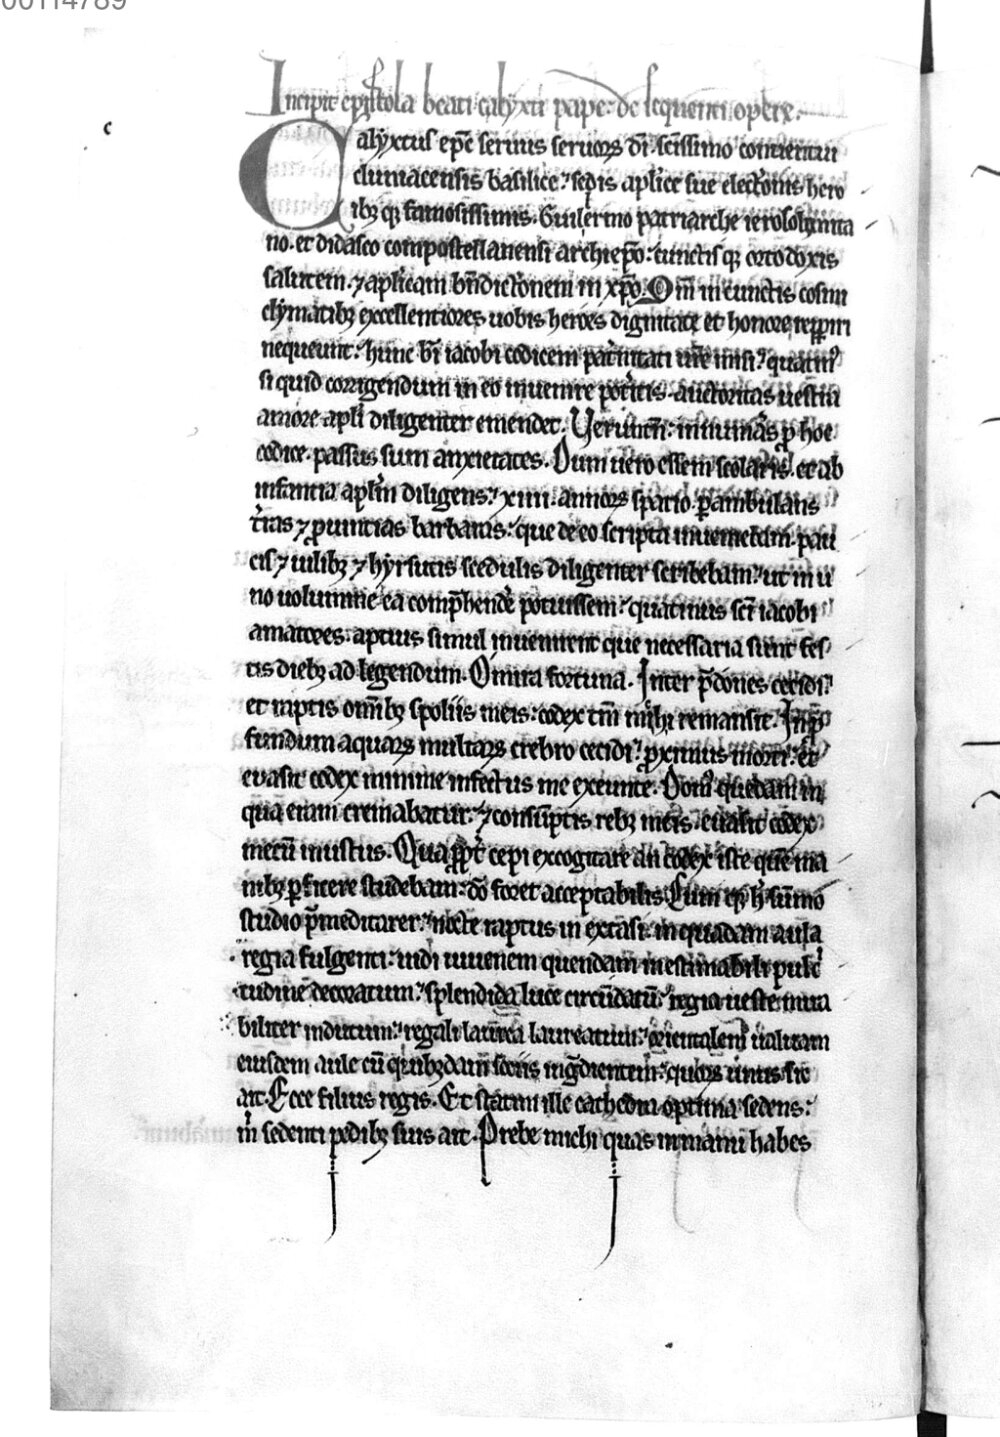 00114789
Incipit epistola beati calyxti pape: de sequenti opere.
c
Calyxtus ep̄c seruus seruoꝝ dī. sc̄issimo conuentui
cluniacensis basilice: sedis aplice sue electōnis hero
ibꝫ qꝫ famosissimis. Guilermo patriarche ierosolimita
no. et didasco compostellanensi archiep̄o: cunctisqꝫ ortodoxis
salutem. ⁊ aplicam bn̄dictōnem in xp̄o. Qm̄ in cunctis cosmi
clymatibꝫ excellentiores uobis heroes dignitate et honore repperiri
nequeunt: hunc bī iacobi codicem pat̓nitati ur̄e misi: quatin᷒
si quid corrigendum in eo inuenire pot̓itis. auctoritas uestra
amore apl̄i diligenter emendet. Verūtn̄: innum̓as ꝓ hoc
codice. passus sum anxietates. Dum uero essem scolaris. et ab
infantia apl̄m diligens: xiiii. annoꝝ spatio. ꝑambulans
t̓ras ⁊ ꝓuintias barbaras: que de eo scripta inueniebam. pau
cis ⁊ uilibꝫ ⁊ hyrsutis scedulis diligenter scribebam: ut in u
no uolumine ea comp̄hendē potuissem: quatinus sc̄i iacobi
amatores. aptius simul inuenirent que necessaria sunt fes
tis diebꝫ ad legendum. O mira fortuna. Inter p̄dones cecidi:
et raptis om̄ibꝫ spoliis meis: codex tm̄ mihi remansit. In ꝓ
fundum aquaꝝ multaꝝ crebro cecidi: ꝓximus morti: et
euasit codex minime infectus me exeunte. Dom᷒ quedam in
qua eram cremabatur: ⁊ consūptis rebꝫ meis. euasit codex
mecū inustus. Quaꝓpt̓ cepi excogitare an codex iste quē ma
nibꝫ ꝑficere studebam: dō foret acceptabilis. Cum eḡ h̄ sūmo
studio p̄meditarer: nocte raptus in extasi: in quadam aula
regia fulgenti: uidi iuuenem quendam inestimabili pulc̓
tudine decoratum: splendida luce circūdatū: regia ueste mira
biliter indutum: regali laurea laureatum: orientalem ualuam
eiusdem aule cū quibꝫdam sociis ingdientem: quoꝝ unus sic
ait. Ecce filius regis. Et statim ille cathedra optima sedens:
m̄ sedenti pedibꝫ suis ait. Prebe michi quas in manu habes